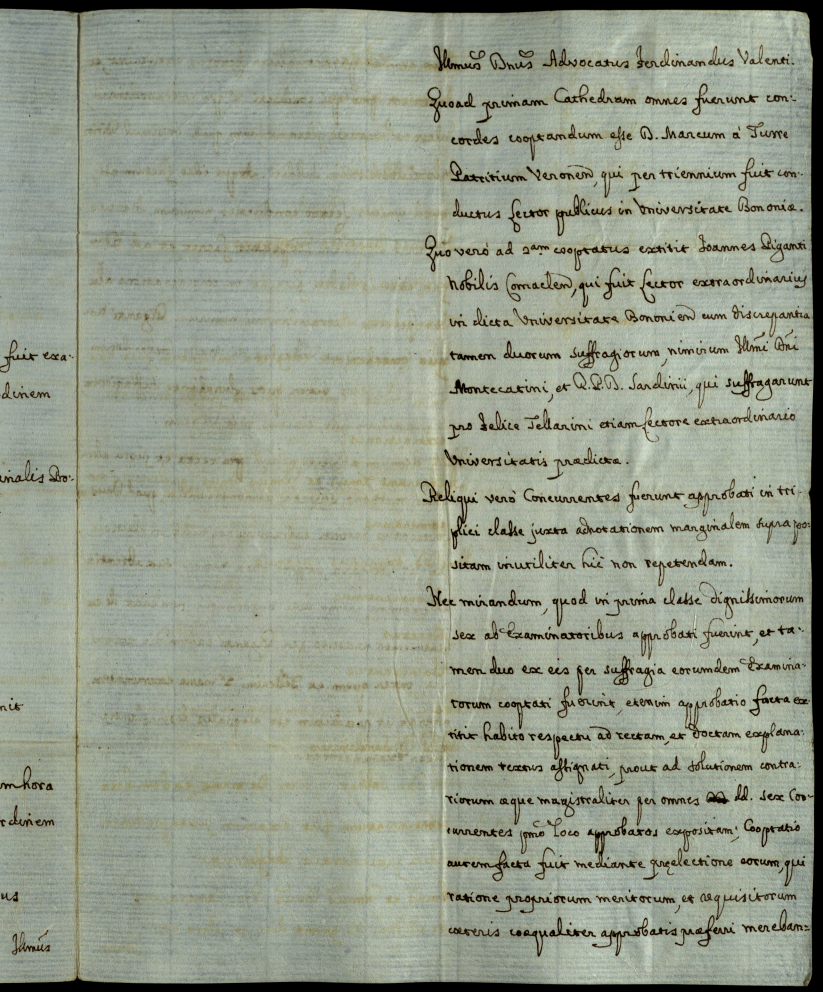 fuit exa-
dinem
inalis Do-
nit
m hora
rdinem
us
Illmus
Illmus Dnus Advocatus Ferdinandus Valenti.
Quoad primam Cathedram omnes fuerunt con-
cordes cooptandum esse D. Marcum a Turre
Patritium Veronen, qui per triennium fuit con-
ductus Lector publicus in Universitate Bononiæ.
Quo verò ad 2am cooptatus extitit Joannes Piganti
Nobilis Comaclen, qui fuit Lector extraordinarius
in dicta Universitate Bononien cum discrepantia
tamen duorum suffragiorum, nimirum Illmi Dni
Montecatini, et R.P.D. Sardinii, qui suffragarunt
pro Felice Tellarini etiam Lectore extraordinario
Universitatis prædictæ.
Reliqui verò Concurrentes fuerunt approbati in tri-
plici classe juxta adnotationem marginalem supra po-
sitam inutiliter hic non repetendam.
Nec mirandum, quod in prima classe dignissimorum
sex ab Examinatoribus approbati fuerint, et ta-
men duo ex eis per suffragia eorumdem Examina-
torum cooptati fuerint, etenim approbatio facta ex-
titit habito respectu ad rectam, et doctam explana-
tionem textus assignati, prout ad solutionem contra-
riorum æque magistraliter per omnes dd. sex Con-
currentes pmo loco approbatos expositam; Cooptatio
autem facta fuit mediante prælectione eorum, qui
ratione propriorum meritorum, et requisitorum
cæteris coæqualiter approbatis præferri mereban-